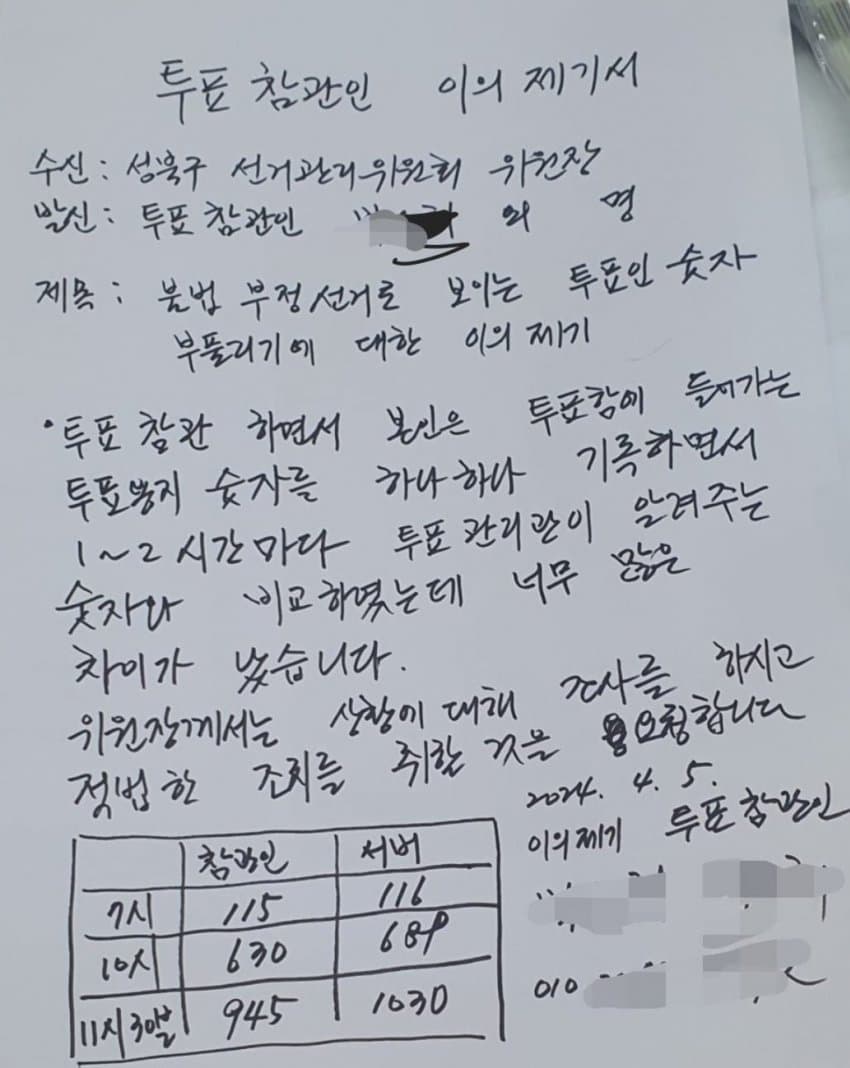 투표 참관인 이의 제기서
수신 : 성북구 선거관리위원회 위원장
발신 : 투표 참관인 외 명
제목 : 불법 부정선거로 보이는 투표인 숫자
부풀리기에 대한 이의 제기
• 투표 참관 하면서 본인은 투표함에 들어가는
투표용지 숫자를 하나하나 기록하면서
1~2시간마다 투표관리관이 알려주는
숫자와 비교하였는데 너무 많은
차이가 났습니다.
위원장께서는 상황에 대해 조사를 하시고
적법한 조치를 취할 것을 요청합니다
2024. 4. 5.
이의제기 투표참관인
010
참관인 서버
7시 115 116
10시 630 689
11시30분 945 1030